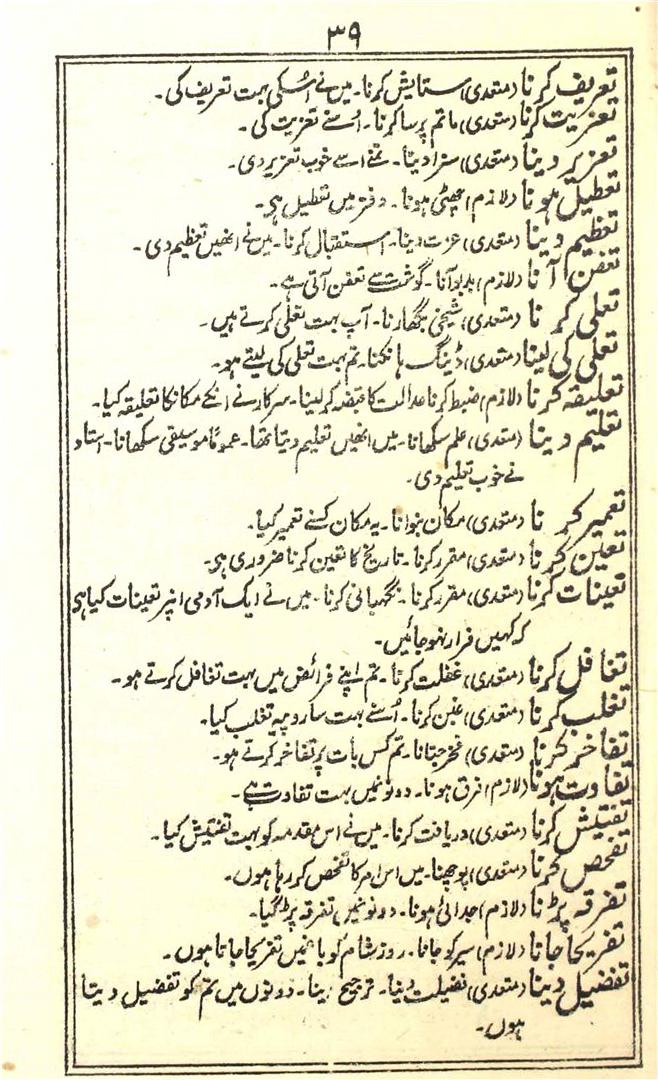 ۳۹
تعریف کرنا (متعدی) ستایش کرنا۔ میں نے اُسکی بہت تعریف کی۔
تعزیت کرنا (متعدی) ماتم پرسا کرنا۔ اُسنے تعزیت کی۔
تعزیر دینا (متعدی) سزا دینا۔ تمنے اسے خوب تعزیر دی۔
تعطیل ہونا (لازم) چھٹی ہونا۔ دفتر میں تعطیل ہی۔
تعظیم دینا (متعدی) عزت دینا۔ استقبال کرنا۔ میں نے انھیں تعظیم دی۔
تعفن آنا (لازم) بدبو آنا۔ گوشت سے تعفن آتی ہے۔
تعلی کرنا (متعدی) شیخی بگھارنا۔ آپ بہت تعلی کرتے ہیں۔
تعلی کی لینا (متعدی) ڈینگ ہانکنا۔ تم بہت تعلی کی لیتے ہو۔
تعلیقہ کرنا (لازم) ضبط کرنا عدالت کا قبضہ کر لینا۔ سرکار نے انکے مکانکا تعلیقہ کیا۔
تعلیم دینا (متعدی) علم سکھانا۔ میں انھیں تعلیم دیتا تھا۔ عموماً موسیقی سکھانا۔ استاد
نے خوب تعلیم دی۔
تعمیر کرنا (متعدی) مکان بنوانا۔ یہ مکان کسنے تعمیر کیا۔
تعین کرنا (متعدی) مقرر کرنا۔ تاریخ کا تعین کرنا ضروری ہی۔
تعینات کرنا (متعدی) مقرر کرنا۔ نگہبانی کرنا۔ میں نے ایک آدمی انپر تعینات کیا ہی
کہ کہیں فرار نہو جائیں۔
تغافل کرنا (متعدی) غفلت کرنا۔ تم اپنے فرائض میں بہت تغافل کرتے ہو۔
تغلب کرنا (متعدی) غبن کرنا۔ اُسنے بہت سا روپیہ تغلب کیا۔
تفاخر کرنا (متعدی) فخر جتانا۔ تم کس بات پر تفاخر کرتے ہو۔
تفاوت ہونا (لازم) فرق ہونا۔ دونونمیں بہت تفاوت ہے۔
تفتیش کرنا (متعدی) دریافت کرنا۔ میں نے اس مقدمہ کو بہت تفتیش کیا۔
تفحص کرنا (متعدی) پوچھنا۔ میں اس امر کا تفحص کر رہا ہوں۔
تفرقہ پڑنا (لازم) جدائی ہونا۔ دونونمیں تفرقہ پڑ گیا۔
تفریحاً جانا (لازم) سیر کو جانا۔ روز شام کو باغمیں تفریحاً جاتا ہوں۔
تفضیل دینا (متعدی) فضیلت دینا۔ ترجیح دینا۔ دونوں میں تم کو تفضیل دیتا
ہوں۔